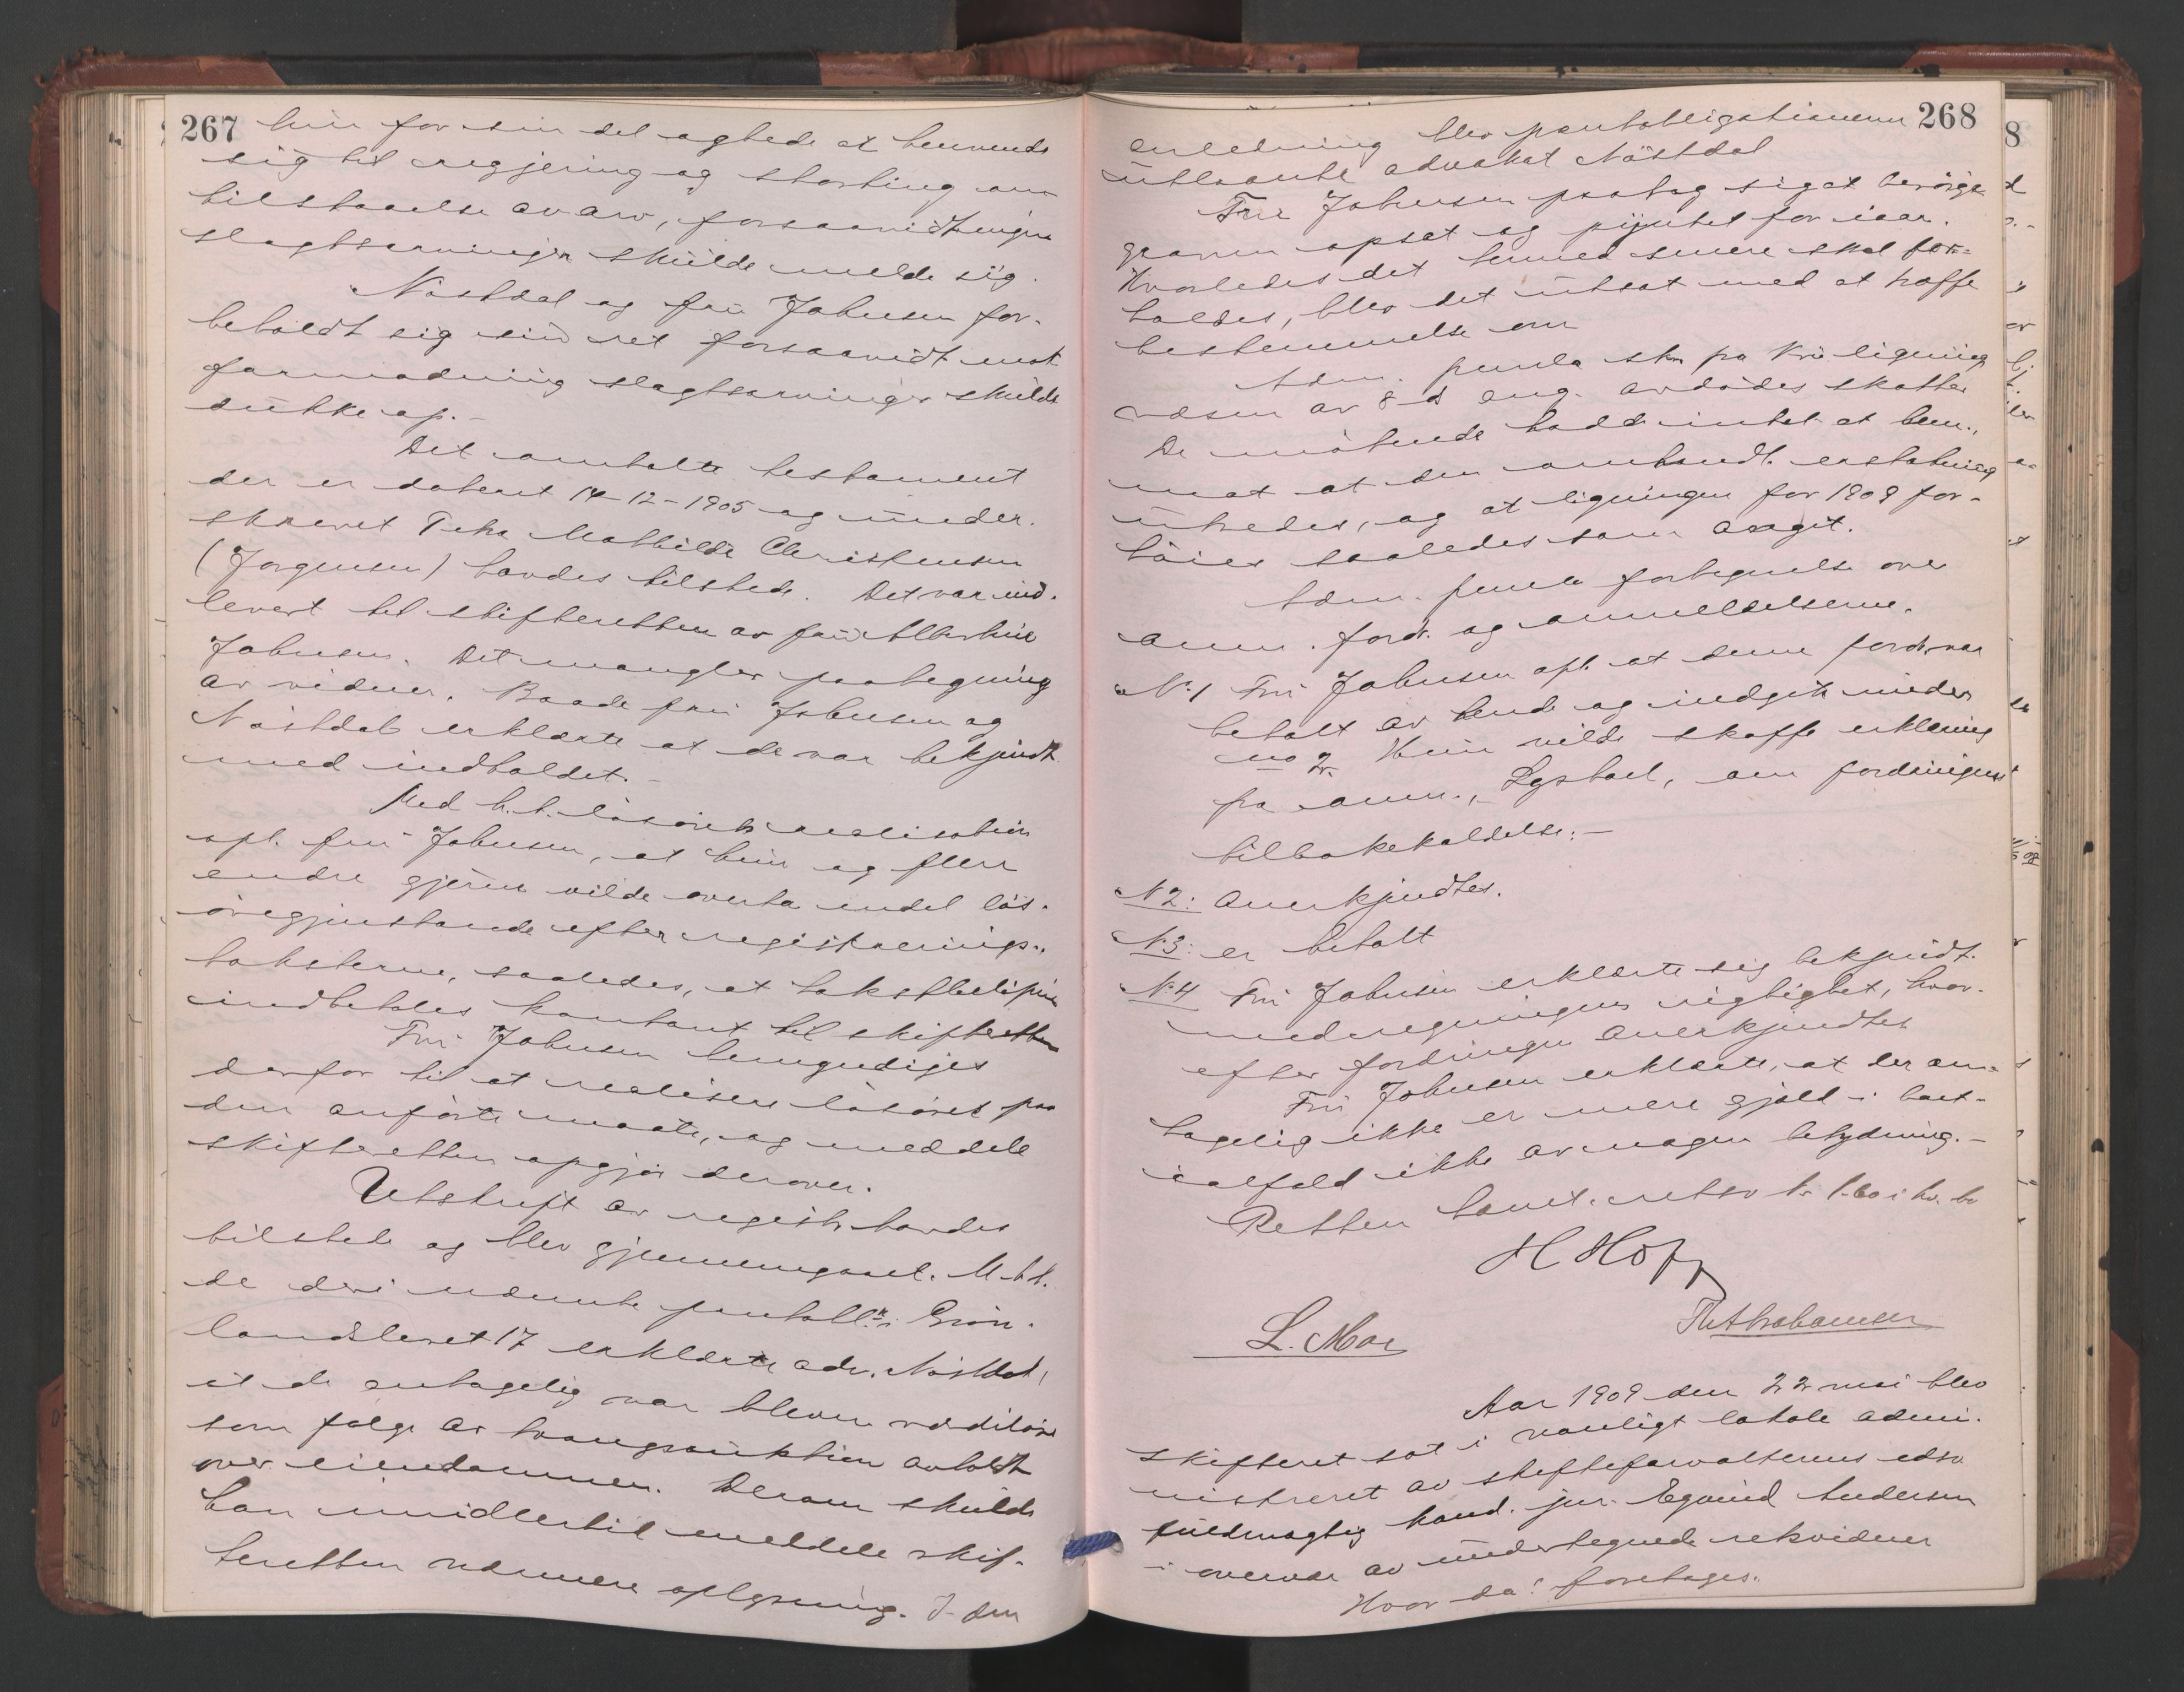 267
hun for sin del agtede at henvende
sig til regjering og storting om
tilstaaelse av arv, forsaavidt ingen
slegtsarvinger skulde melde sig.
Nöstdal og fru Johnsen for-
beholdt sig sin ret forsaavidt mot
formodning slegtsarvinger skulde
dukke op.-
Det omtalte testament
der er datert 14-12-1905 og under-
skrevet Mathilde Christensen
(Jørgensen) havdes tilstede. Det var ind-
levert til skifteretten av fru
Johnsen. Det mangler paategning
av vidner. Baade fru Johnsen og
Nöstdal erklærte at de var bekjendt
med indholdet.-
Med h. t. lösörets realisation
opl. fru Johnsen, at hun og flere
andre gjerne vilde overta endel lös-
öregjenstande efter registrerings-
taksterne, saaledes, at takstbelöpene
indbetales kontant til skifteretten
Fru Johnsen bemyndiges
derfor til at realisere lösöret paa
den anförte maate, og meddele
skifteretten opgjör derover.
Utskrift av registr. havdes
tilstede og blev gjennemgaaet. M. h. t.
de deri nævnte pantobl. i Grön-
landsleret 17 erklærte adv. Nöstdal,
at de antagelig var bleven værdilöse
som fölge av tvangsauktion avholdt
over eiendommen. Derom skulde
han imidlertid meddele skif-
teretten nærmere oplysning. I den
268
anledning blev pantobligationerne
utlaante advokat Nöstdal
Fru Johnsen paatog sig at besörge
graven opsat og pyntet for iaar.
Hvorledes det hermed senere skal for-
holdes, blev det utsat med at træffe
bestemmelse om
Adm. freml. skr. fra Kra. lignings-
væsen av 8 ds ang. avdödes skatter
De mötende hadde intet at bem.,
mot at den omhandl. erstatning
utredes, og at ligningen for 1909 for-
höies saaledes som
Adm. freml. fortegnelse over
anm. fordr. og anmeldelserne.
No 1 Fru Johnsen opl. at denne fordr. var
betalt av hende og indgik under
no 2. Hun vilde skaffe erklæring
fra anm., om fordringens
tilbakekaldelse.-
No 2: Anerkjendtes.
No 3: er betalt
No 4 Fru Johnsen erklærte sig bekjendt
med regningens rigtighet, hvor-
efter fordringen anerkjendtes
Fru Johnsen erklærte, at der an-
tagelig ikke er mere gjæld i boet -
ialfald ikke av nogen betydning.-
Retten hævet.
H Hopp
L. Moe
Th Abrahamsen
Aar 1909 den 22 mai blev
skifteret sat i vanligt lokale admi-
nistreret av skifteforvalterens edsv
fuldmægtig kand. jur. Egvind Andersen
i overvær av undertegnede retsvidner
Hvor da: foretages.